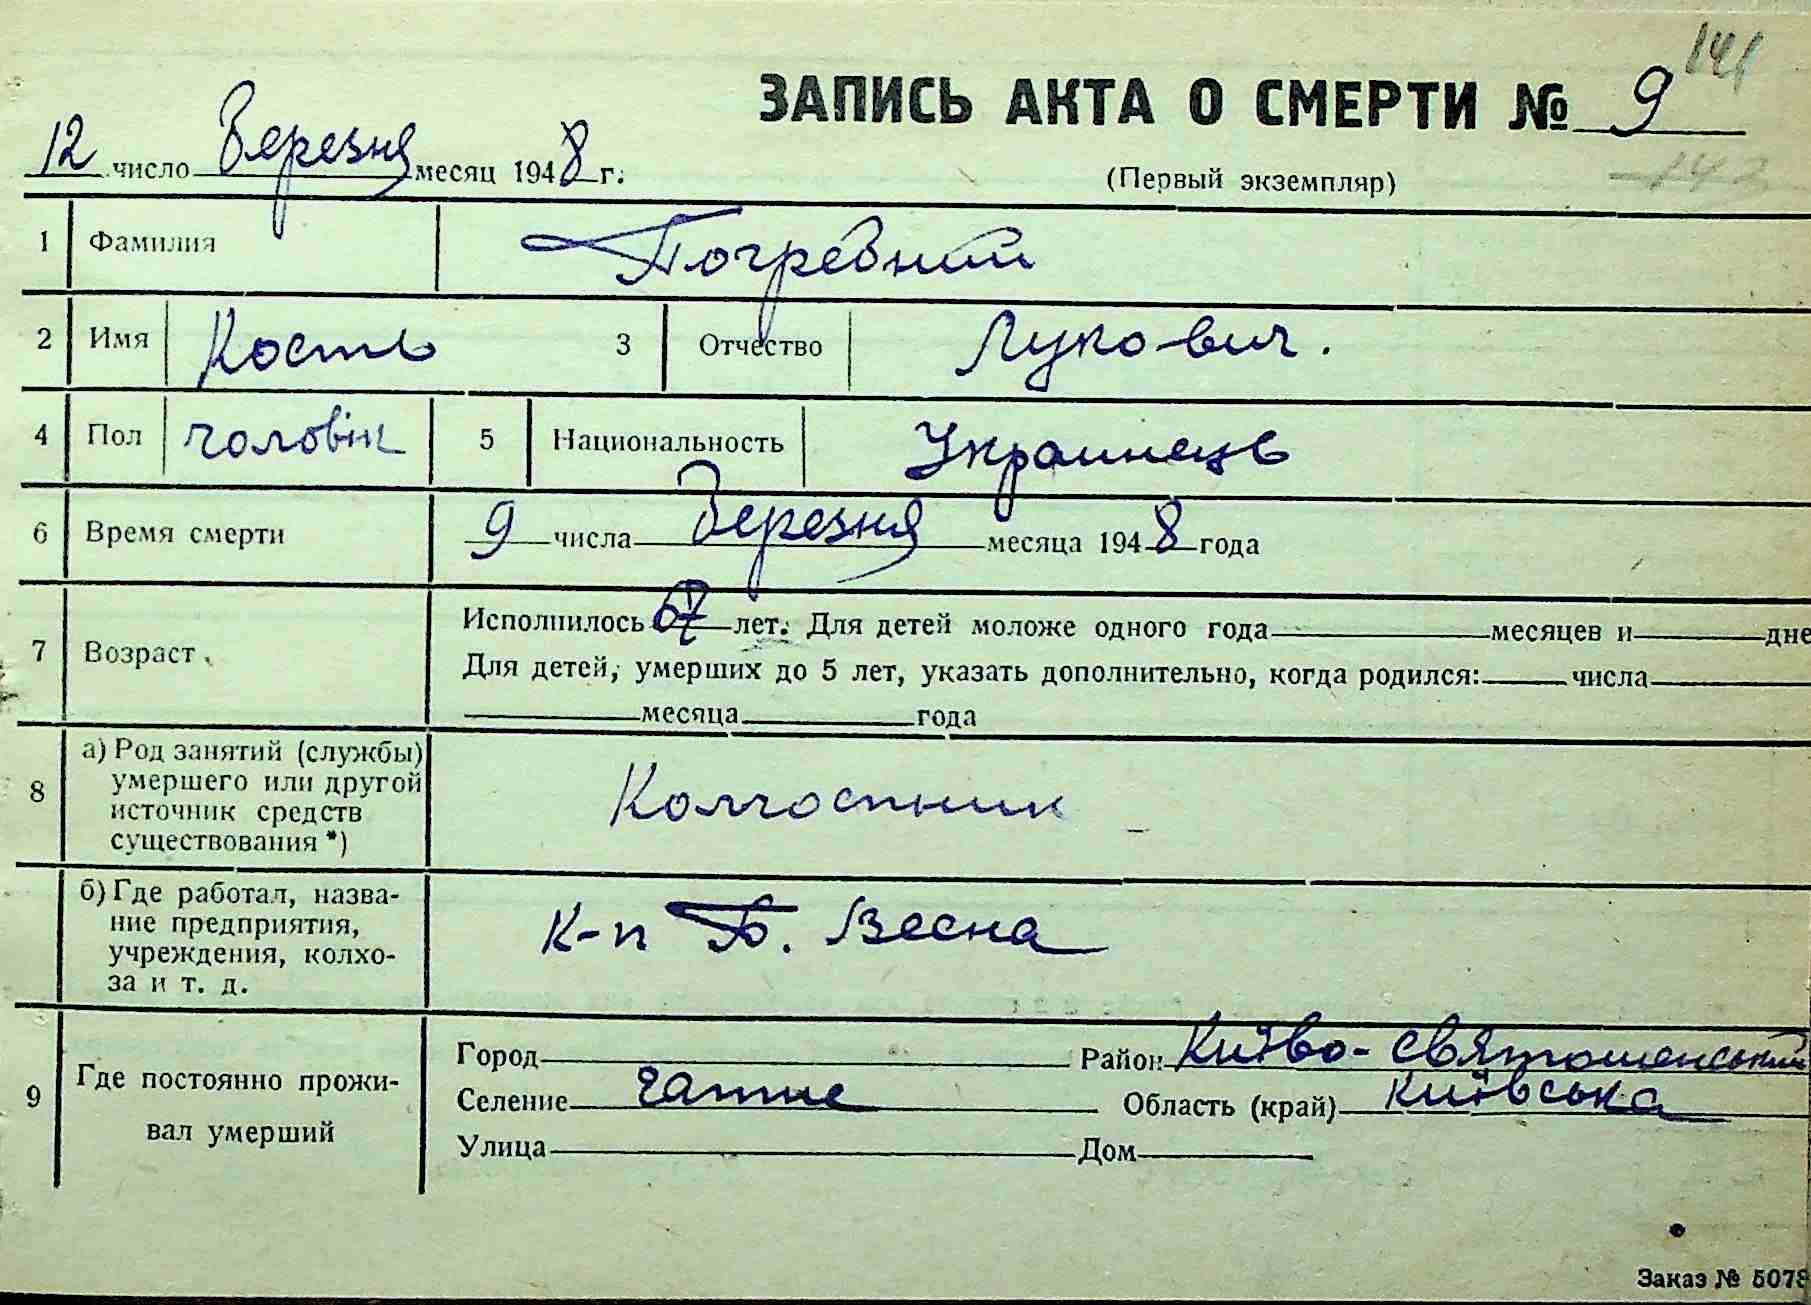 141
ЗАПИСЬ АКТА О СМЕРТИ № 9
12 число Березня месяц 1948 г.
(Первый экземпляр)
142
1 Фамилия Погребний
2 Имя Кость 3 Отчество Лукович.
4 Пол чоловік 5 Национальность Украинець
6 Время смерти 9 числа Березня месяца 1948 года
7 Возраст Исполнилось 67 лет. Для детей моложе одного года месяцев и дне
Для детей, умерших до 5 лет, указать дополнительно, когда родился: числа
месяца года
8 а) Род занятий (службы)
умершего или другой
источник средств
существования *)
Колгоспник
б) Где работал, назва-
ние предприятия,
учреждения, колхо-
за и т. д.
К-п Б. Весна
9 Где постоянно прожи-
вал умерший
Город Район Київо-Святошенський
Селение Гатне Область (край) Київська
Улица Дом
Заказ № 5078